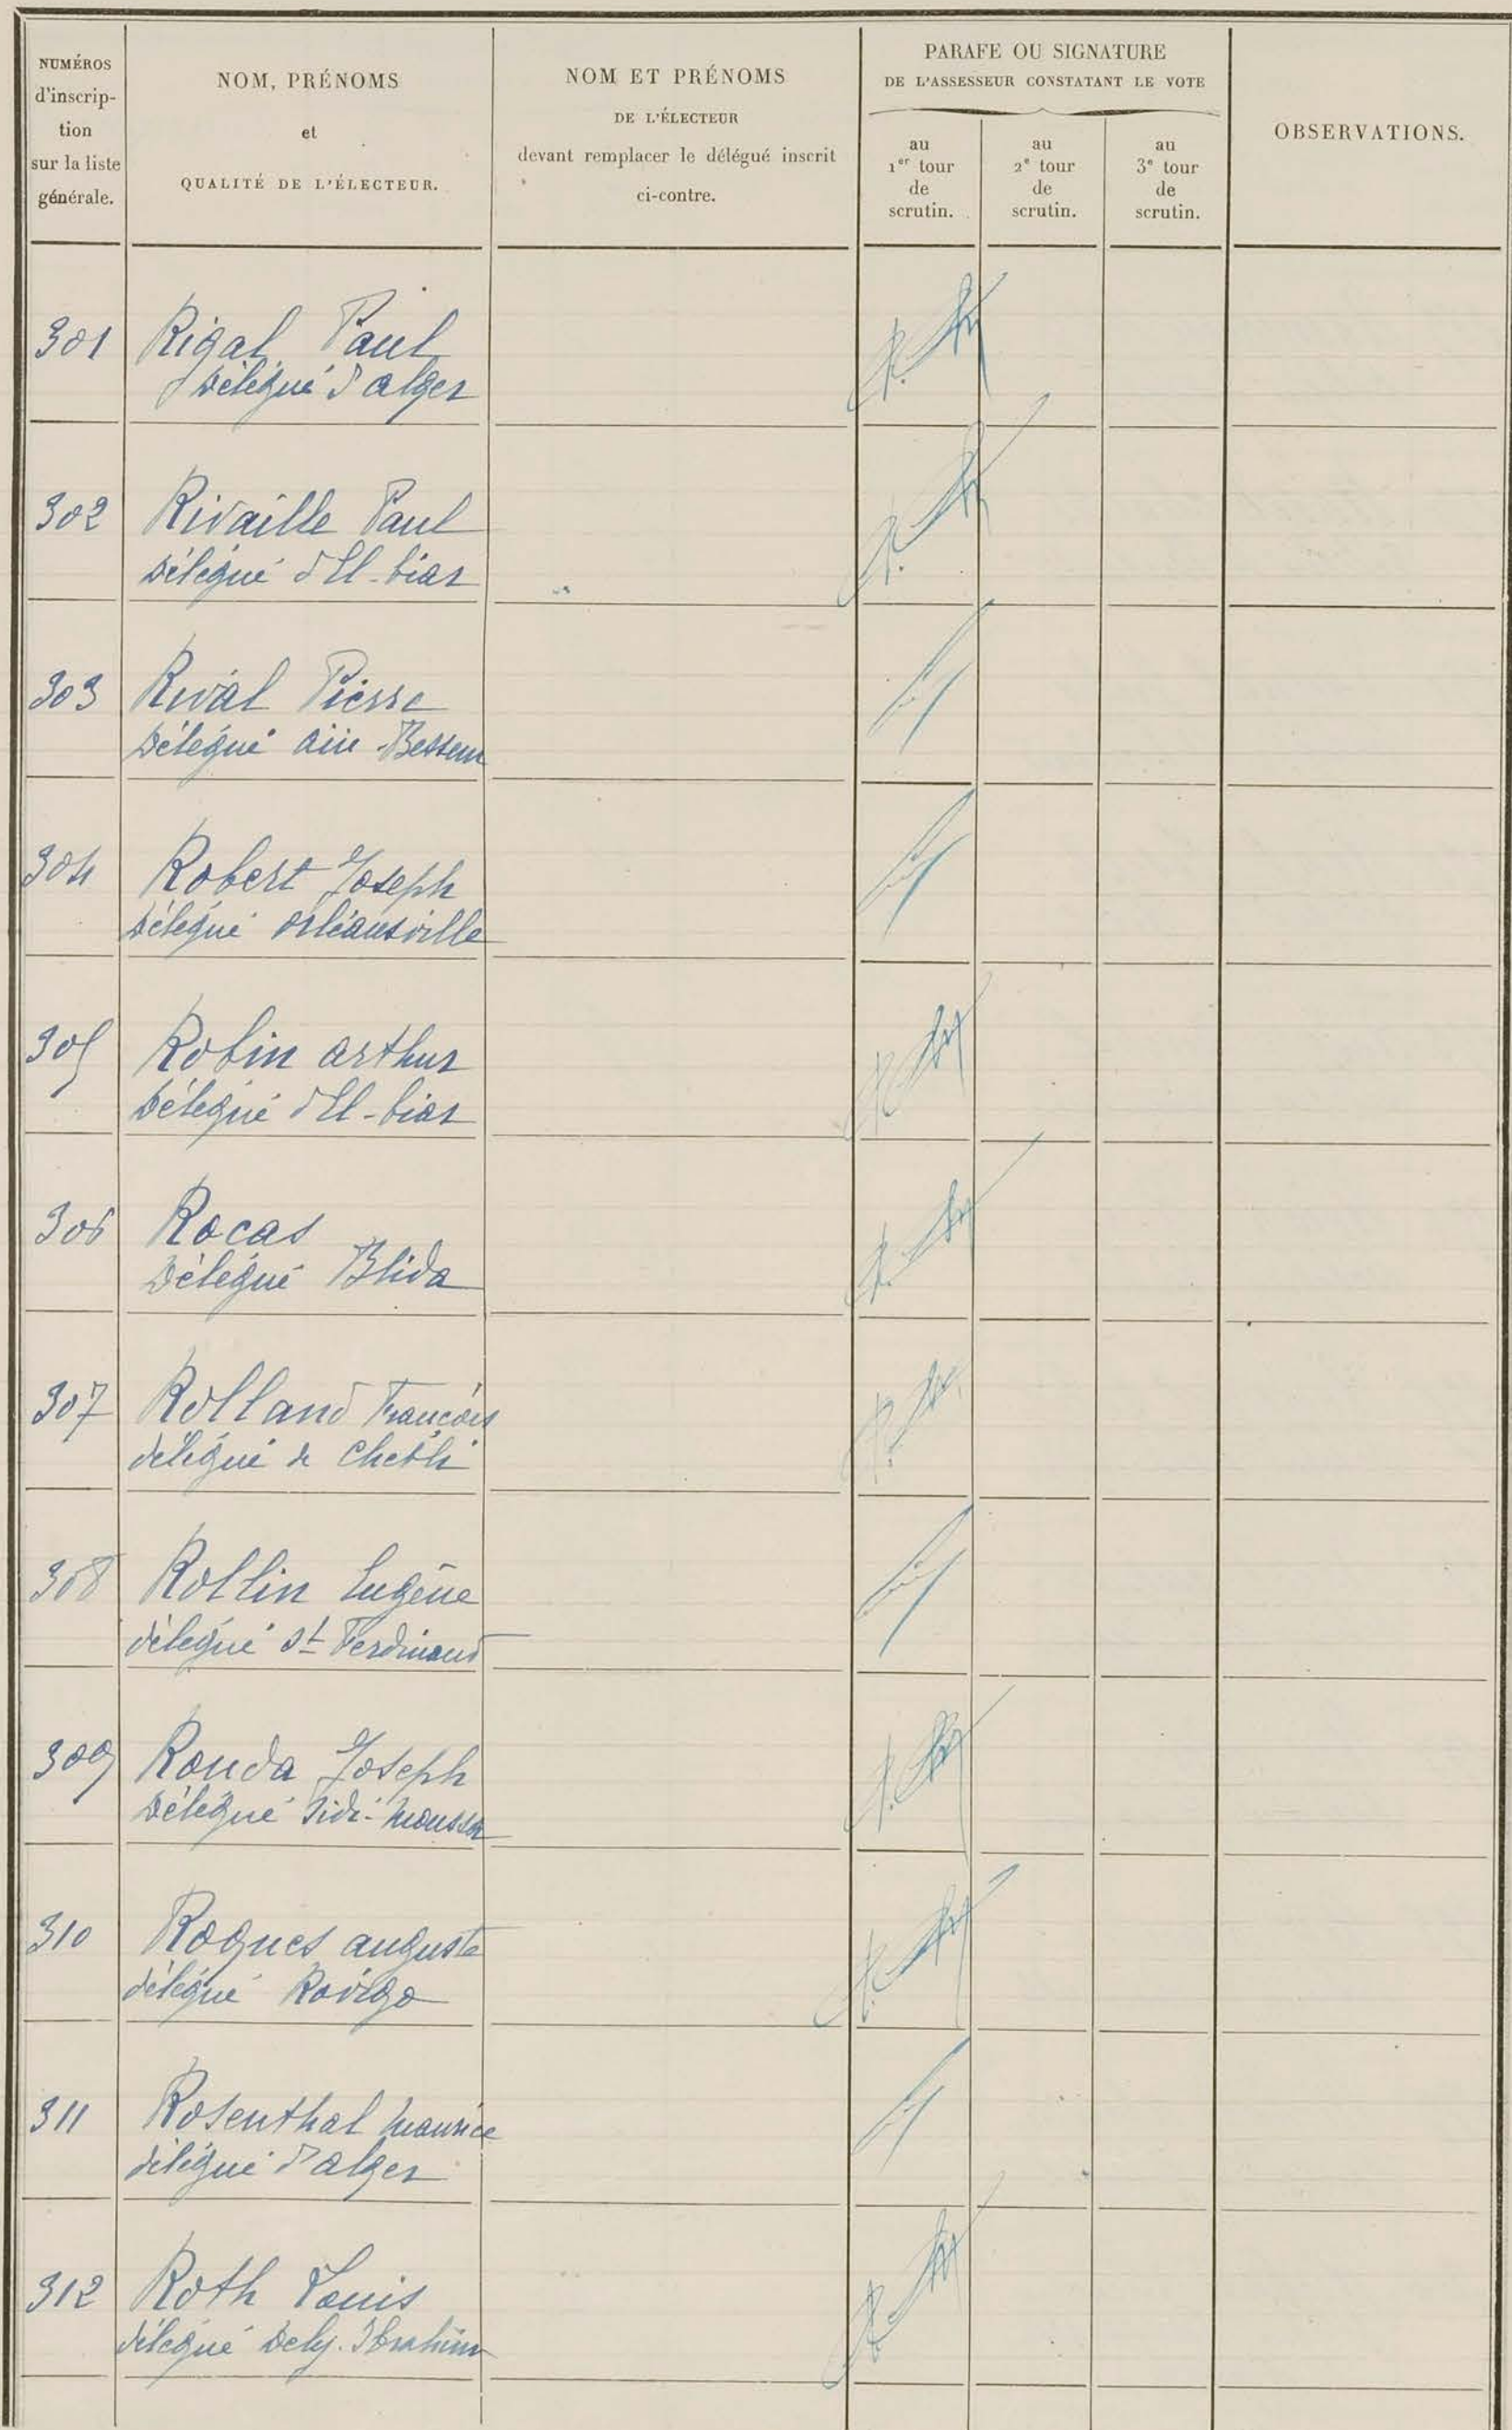 NUMÉROS
d'inscrip-
tion
sur la liste
générale.
NOM, PRÉNOMS
et
QUALITÉ DE L'ÉLECTEUR.
NOM ET PRÉNOMS
DE L'ÉLECTEUR
devant remplacer le délégué inscrit
ci-contre.
PARAFE OU SIGNATURE
DE L'ASSESSEUR CONSTATANT LE VOTE
au
1er tour
de
scrutin.
au
2e tour
de
scrutin.
au
3e tour
de
scrutin.
OBSERVATIONS.
301 Rigal Paul
Délégué d'alger
302 Rivaille Paul
Délégué d'El-biar
303 Rival Pierre
Délégué Ain-Bessem
304 Robert Joseph
Délégué Orléansville
305 Robin arthur
Délégué d'El-biar
306 Rocas
Délégué Blida
307 Rolland François
délégué de Chebli
308 Rollin Eugène
délégué St Ferdinand
309 Ronda Joseph
Délégué Sidi-Moussa
310 Roques auguste
délégué Rovigo
311 Rosenthal Maurice
délégué d'alger
312 Roth Louis
délégué Dely-Ibrahim